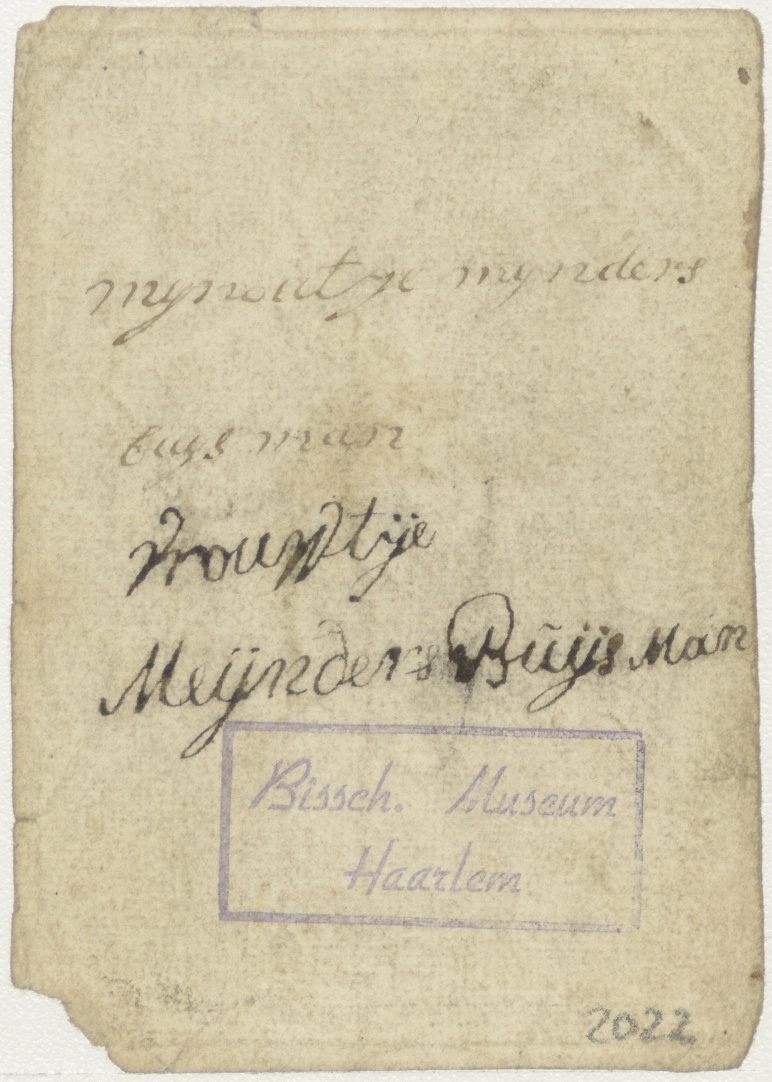 mynoutje mynders
buys man
Vrouwtije
Meijnders Buijs Man
Bissch. Museum
Haarlem
2022